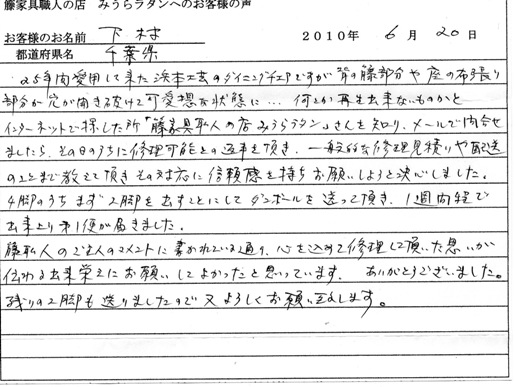 藤家具職人の店 みうらラタンへのお客様の声
お客様のお名前 下村 2010年 6月 20日
都道府県名 千葉県
25年間愛用して来た浜本工芸のダイニングチェアですが 背の藤部分や 座の布張り
部分が穴が開き破けて可愛想な状態に… 何とか再生出来ないものかと
インターネットで探した所「藤家具職人の店 みうらラタン」さんを知り、メールで問合せ
ましたら、その日のうちに修理可能との返事を頂き、一般的な修理見積りや配送
のことまで教えて頂き その対応に信頼感を持ち お願いしようと決心しました。
4脚のうち まず 2脚を出すことにして ダンボールを送って頂き、1週間程で
出来上り 第1便が届きました。
藤職人のご主人のコメントに書かれている通り、心を込めて修理して頂いた思いが
伝わる出来栄えに お願いしてよかったと思っています。 ありがとうございました。
残りの2脚も送りましたので 又よろしくお願い致します。